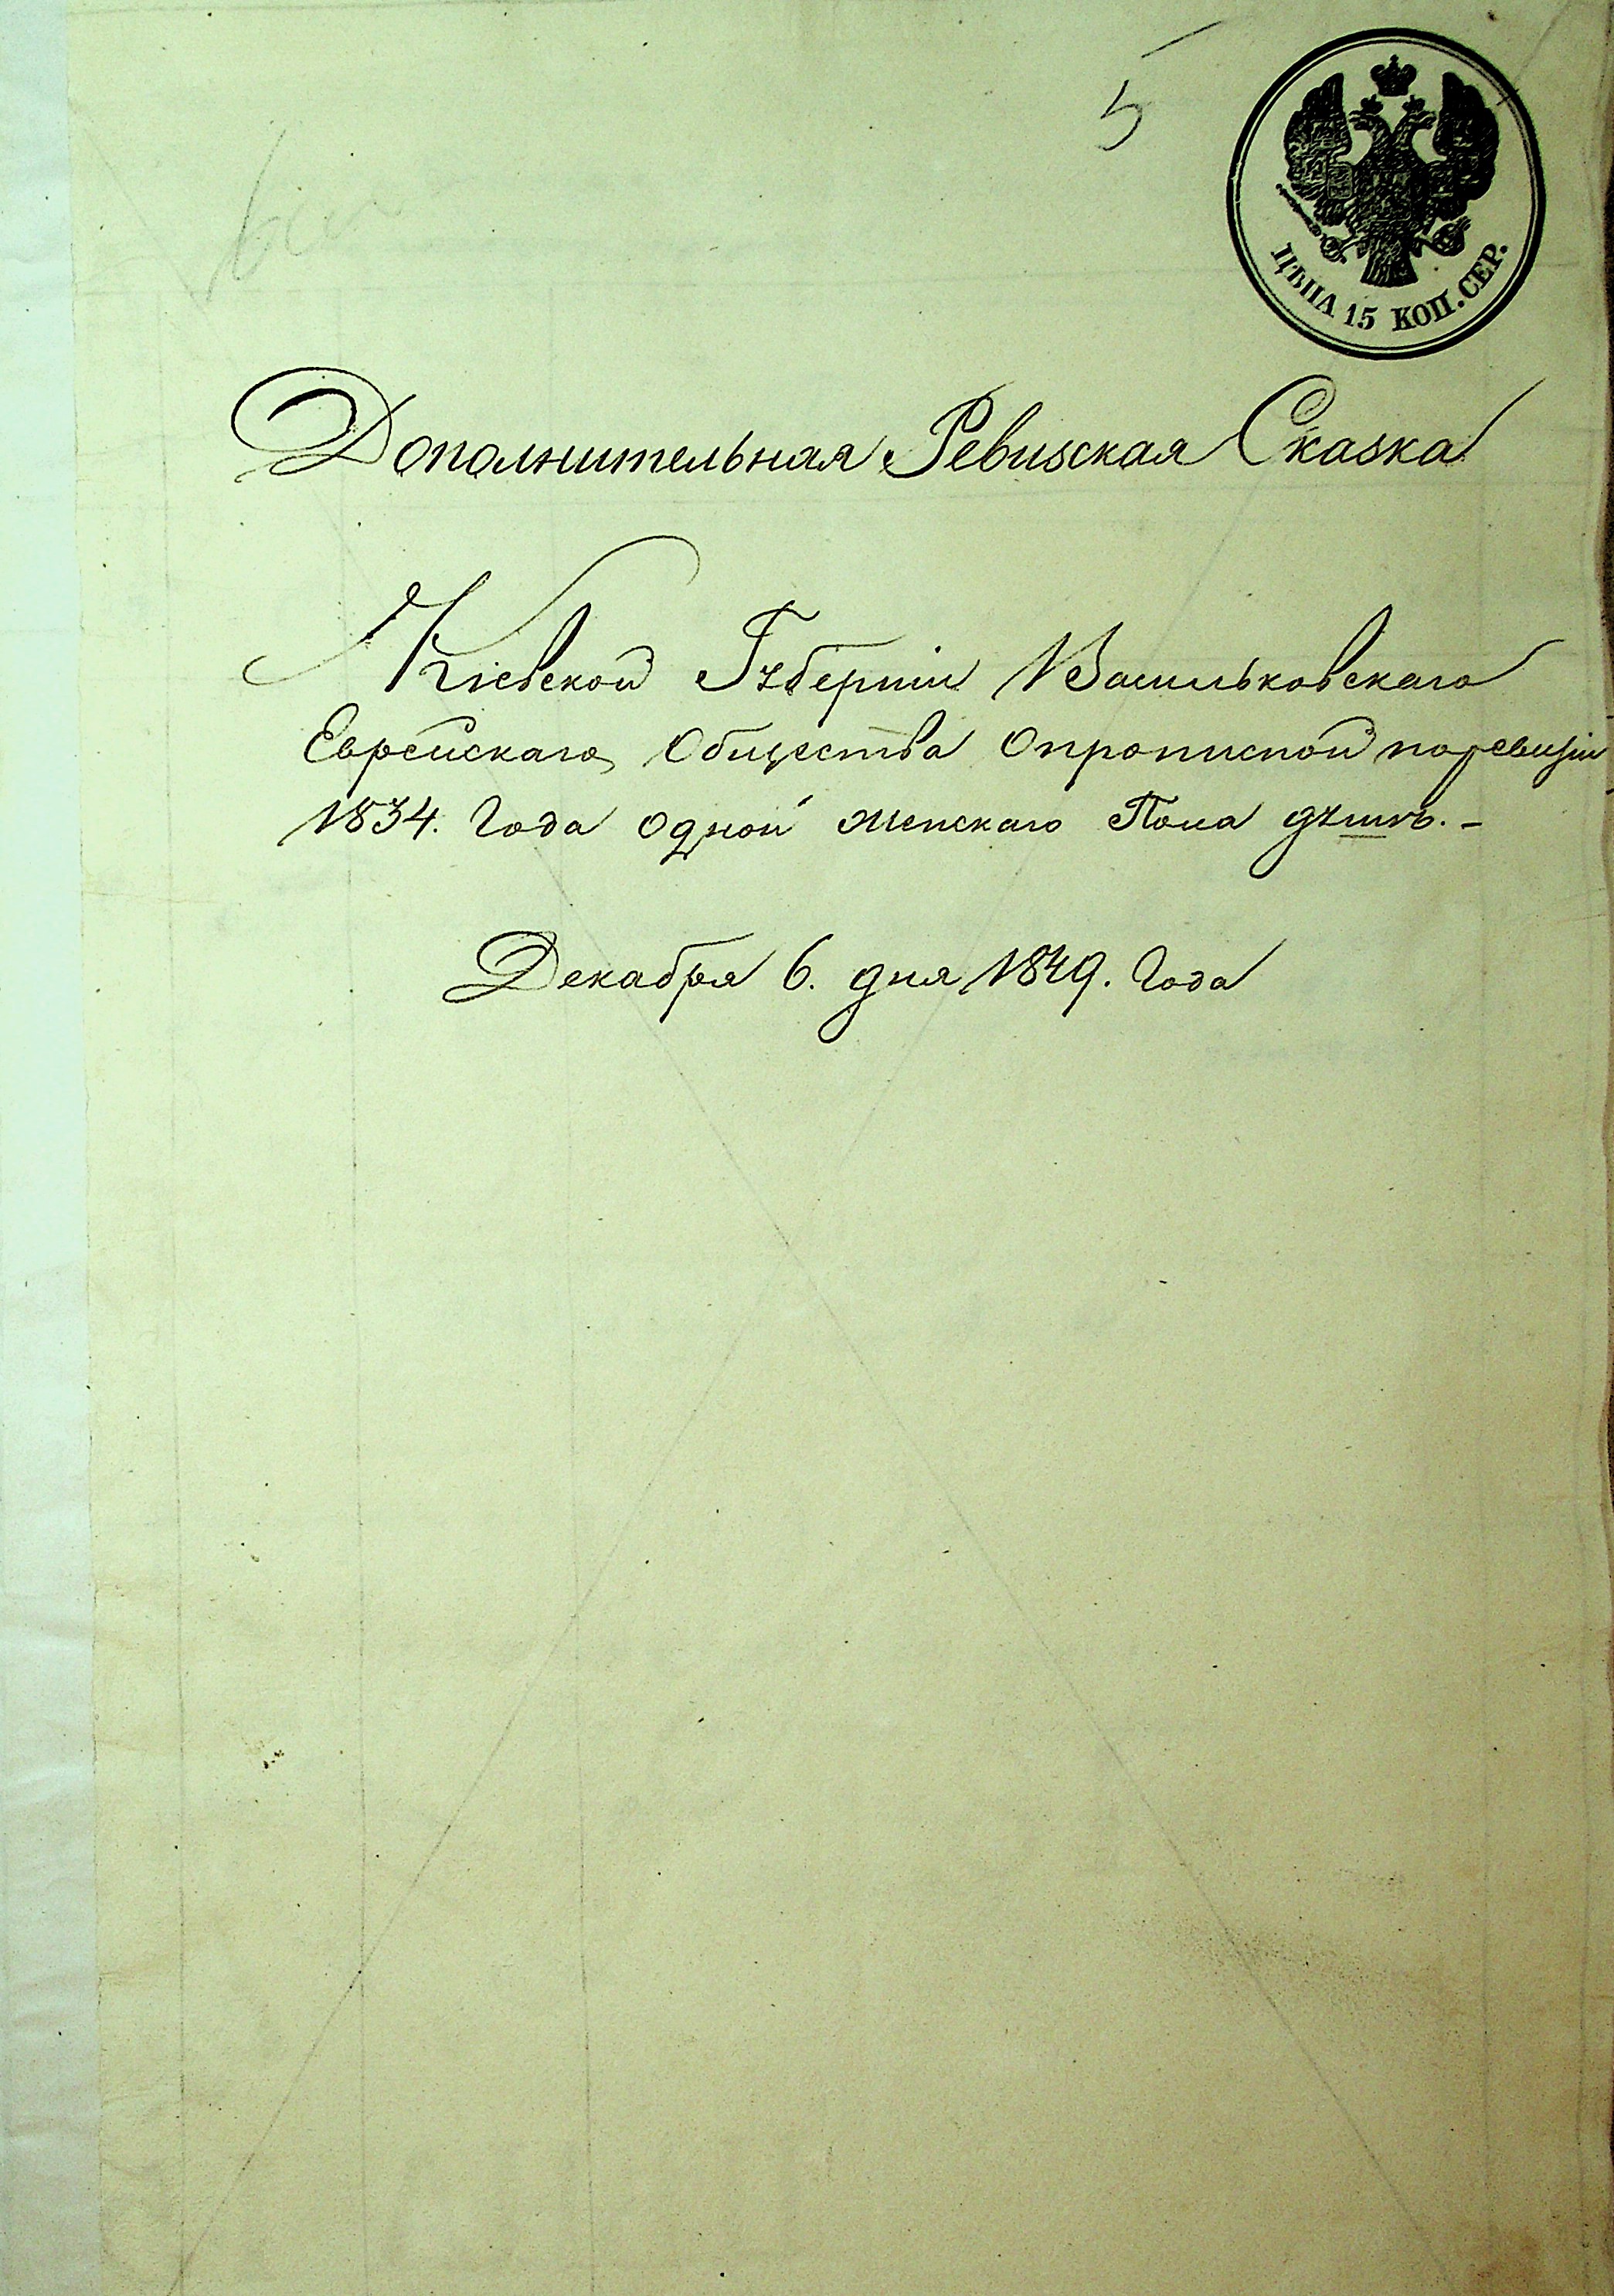 5
ЦѢНА 15 КОП. СЕР.
Дополнительная Ревизская Сказка
Кіевской Губерніи Васильковскаго
Еврейскаго Общества О прописной по ревизіи
1834. Года одной женскаго Пола душѣ. -
Декабря 6. дня 1849. Года